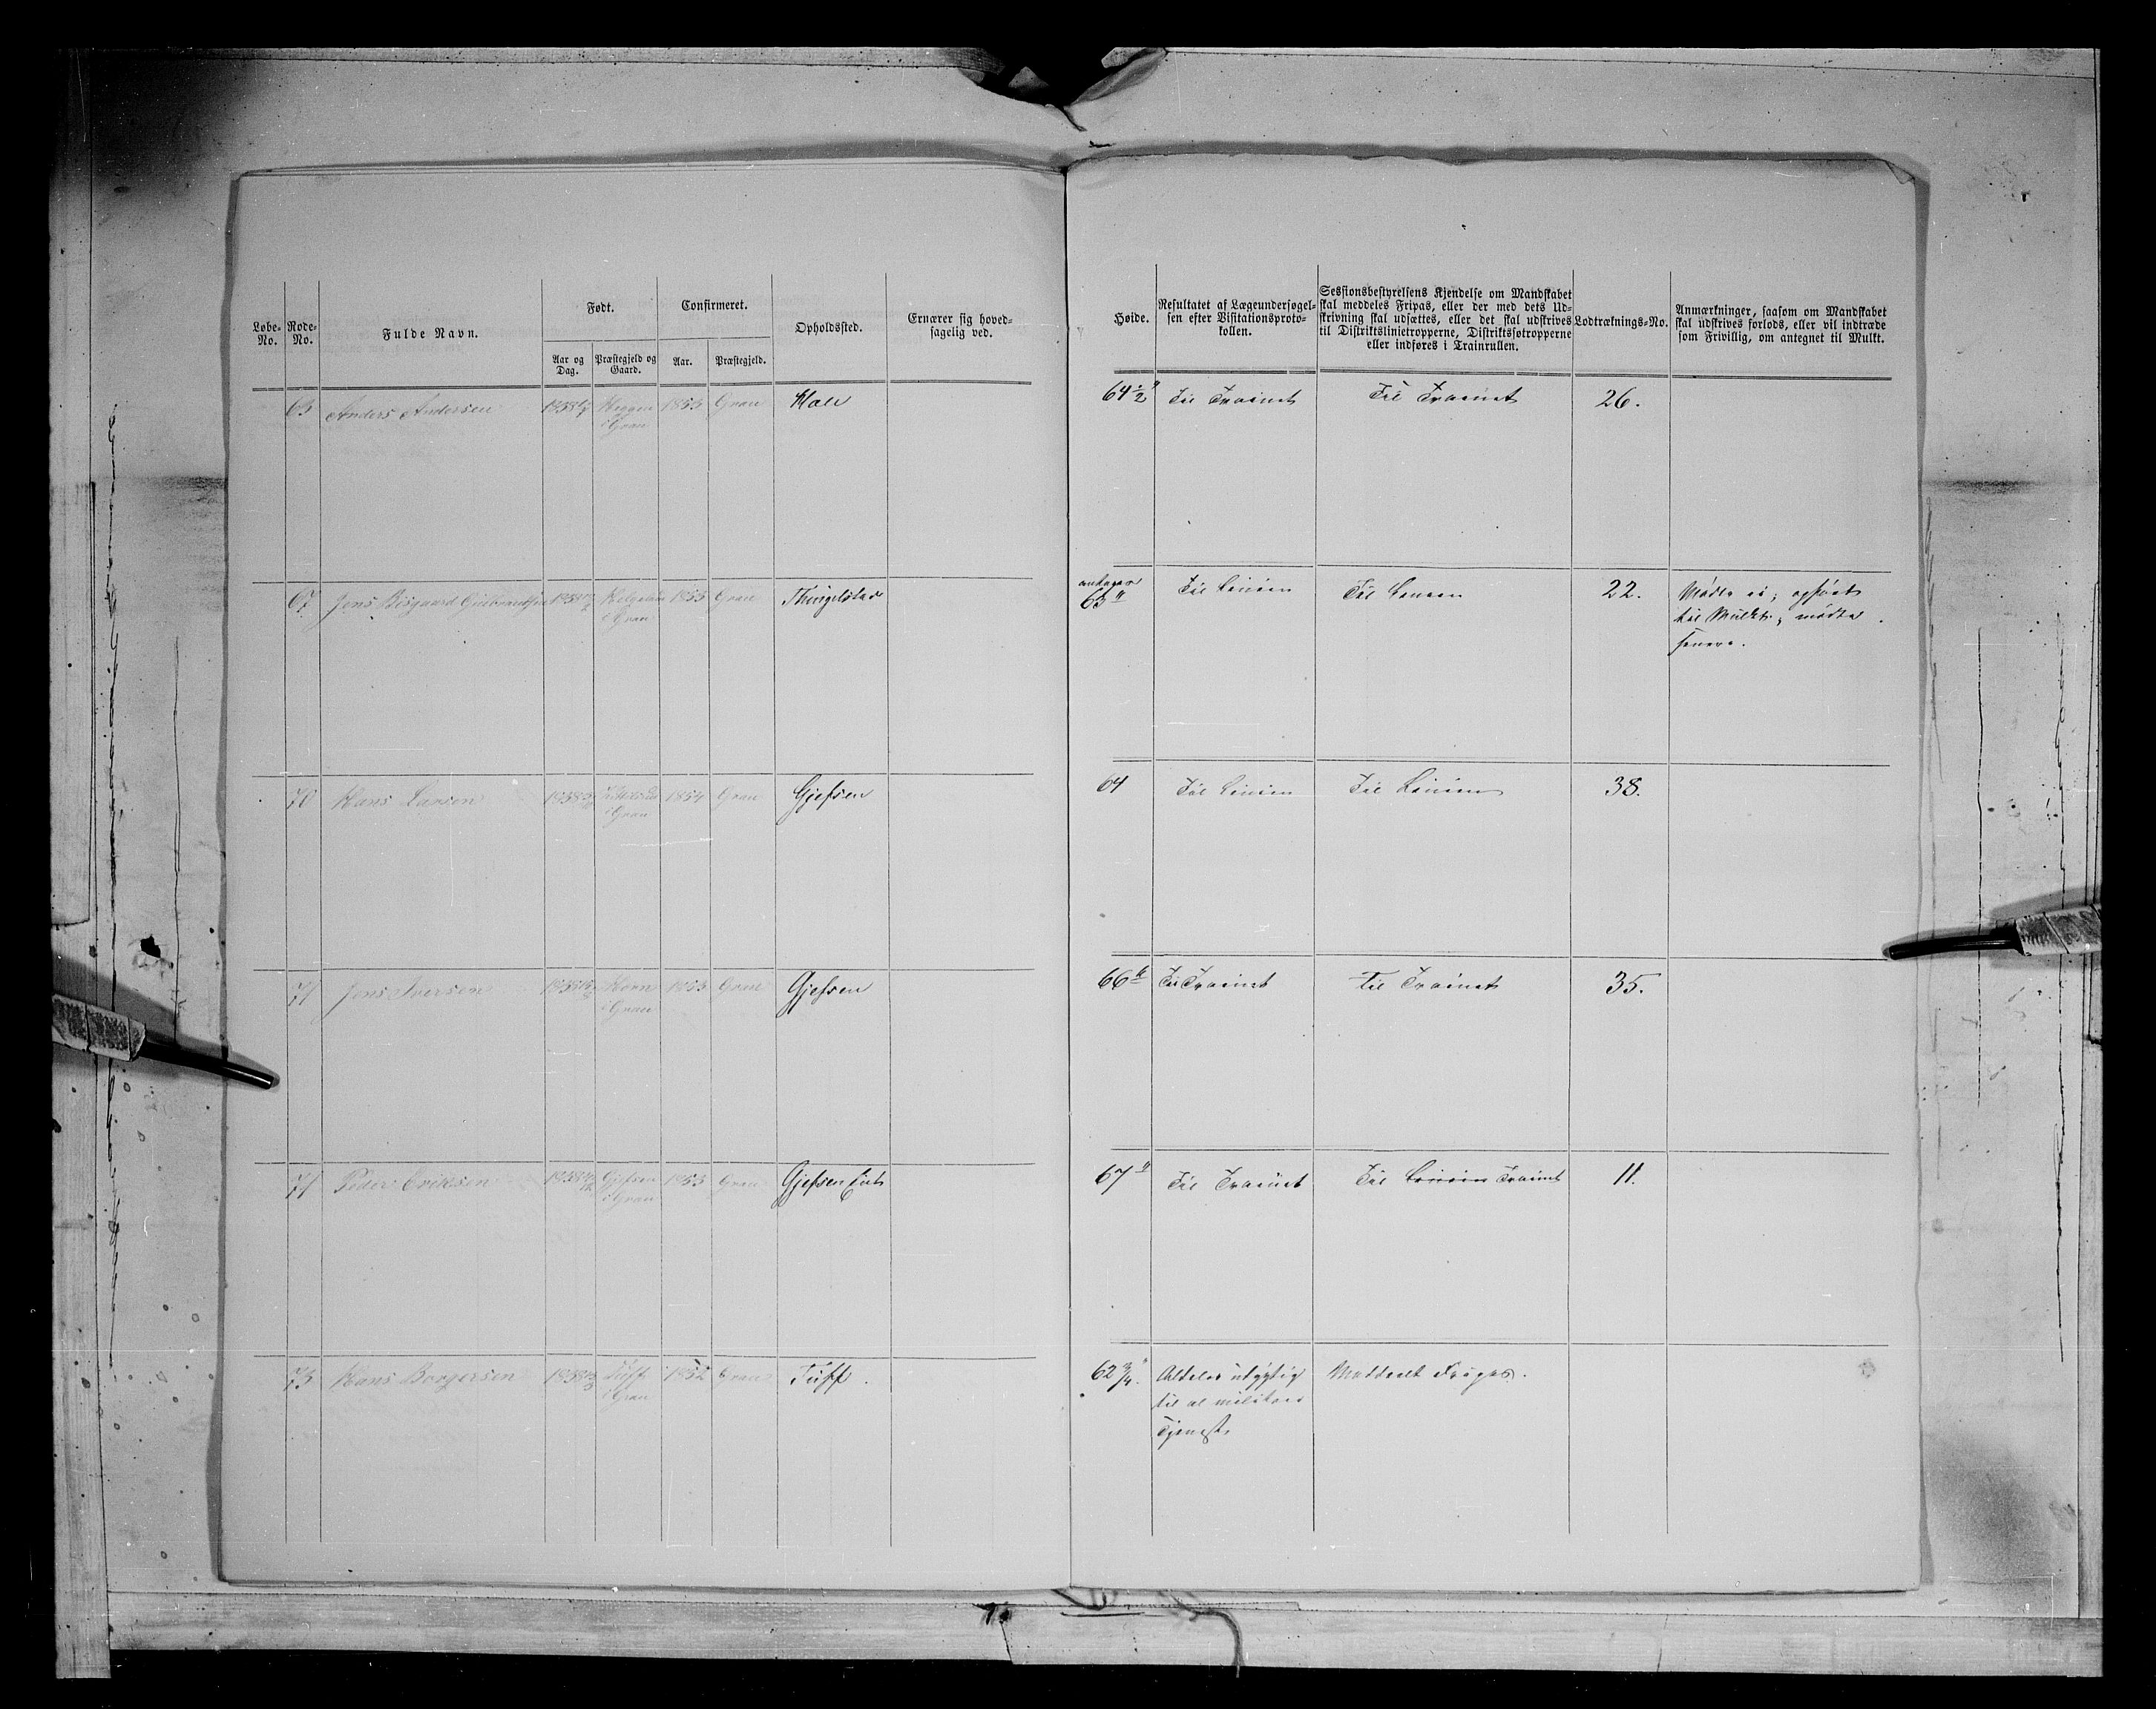 Løbe-No.
Rode-No.
Fulde Navn.
Født.
Aar og Dag.
Præstegjeld og Gaard.
Confirmeret.
Aar.
Præstegjeld.
Opholdssted.
Ernærer sig hoved-
sagelig ved.
Høide.
Resultatet af Lægeundersøgel-
sen efter Visitationsproto-
kollen.
Sessionsbestyrelsens Kjendelse om Mandskabet
skal meddeles Fripas, eller der med dets Ud-
skrivning skal udsættes, eller det skal udskrives
til Distriktslinietropperne, Distriktsføtropperne
eller indføres i Trainrullen.
Lodtræknings-No.
Anmærkninger, saasom om Mandskabet
skal udskrives forlods, eller vil indtræde
som Frivillig, om antegnet til Mulkt.
63 Anders Andersen Gran Hole 64½" Til Trainet Til Trainet 26.
i Gran
67 Jens Bisgaard Gulbrandsen 1853 Gran Thingelstad 63" Til Linien Til Linien 22. Mødte ei; opført
i Gran til Mulkt; mødte
senere.
70 Hans Larsen 1854 Gran Gjefsen 64 Til Linien Til Linien 38.
i Gran
71 Jens Iversen Horn 1853 Gran Gjefsen 66" Til Trainet Til Trainet 35.
i Gran
71 Peder Eriksen Gjefsen 1853 Gran Gjefsen 67" Til Trainet Til Linien Trainet 11.
i Gran
73 Hans Borgersen Tuff 1852 Gran Tuff. 62¾" Aldeles udygtig Meddeelt Fripas.
i Gran til al militær
Tjeneste